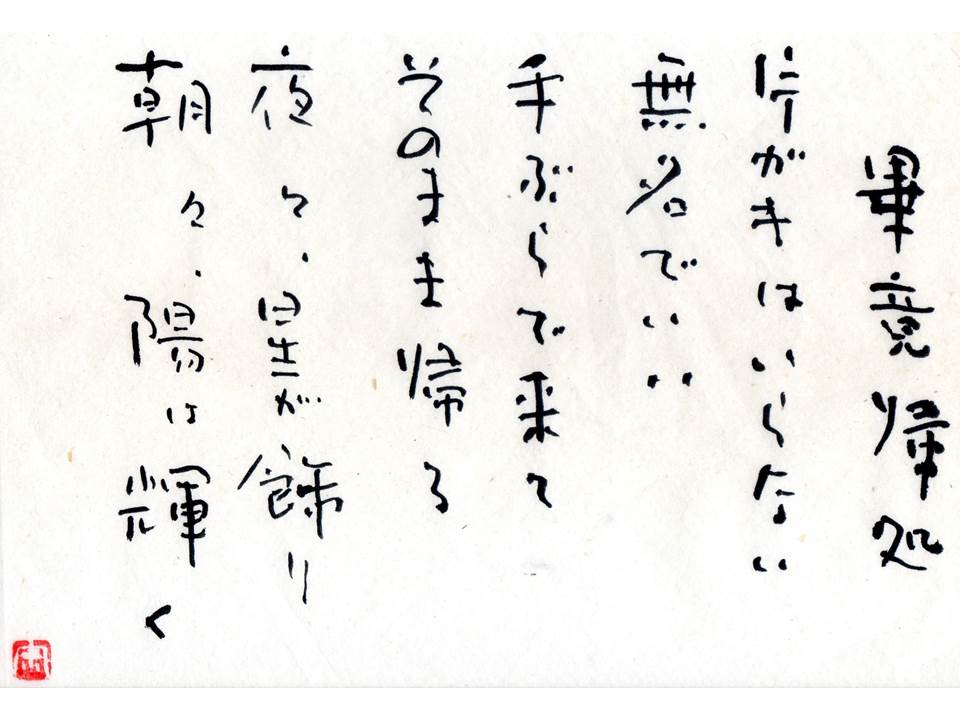 畢竟帰処
片がきはいらない
無名でいい
手ぶらで来て
そのまま帰る
夜々、星が飾り
朝々、陽は輝く